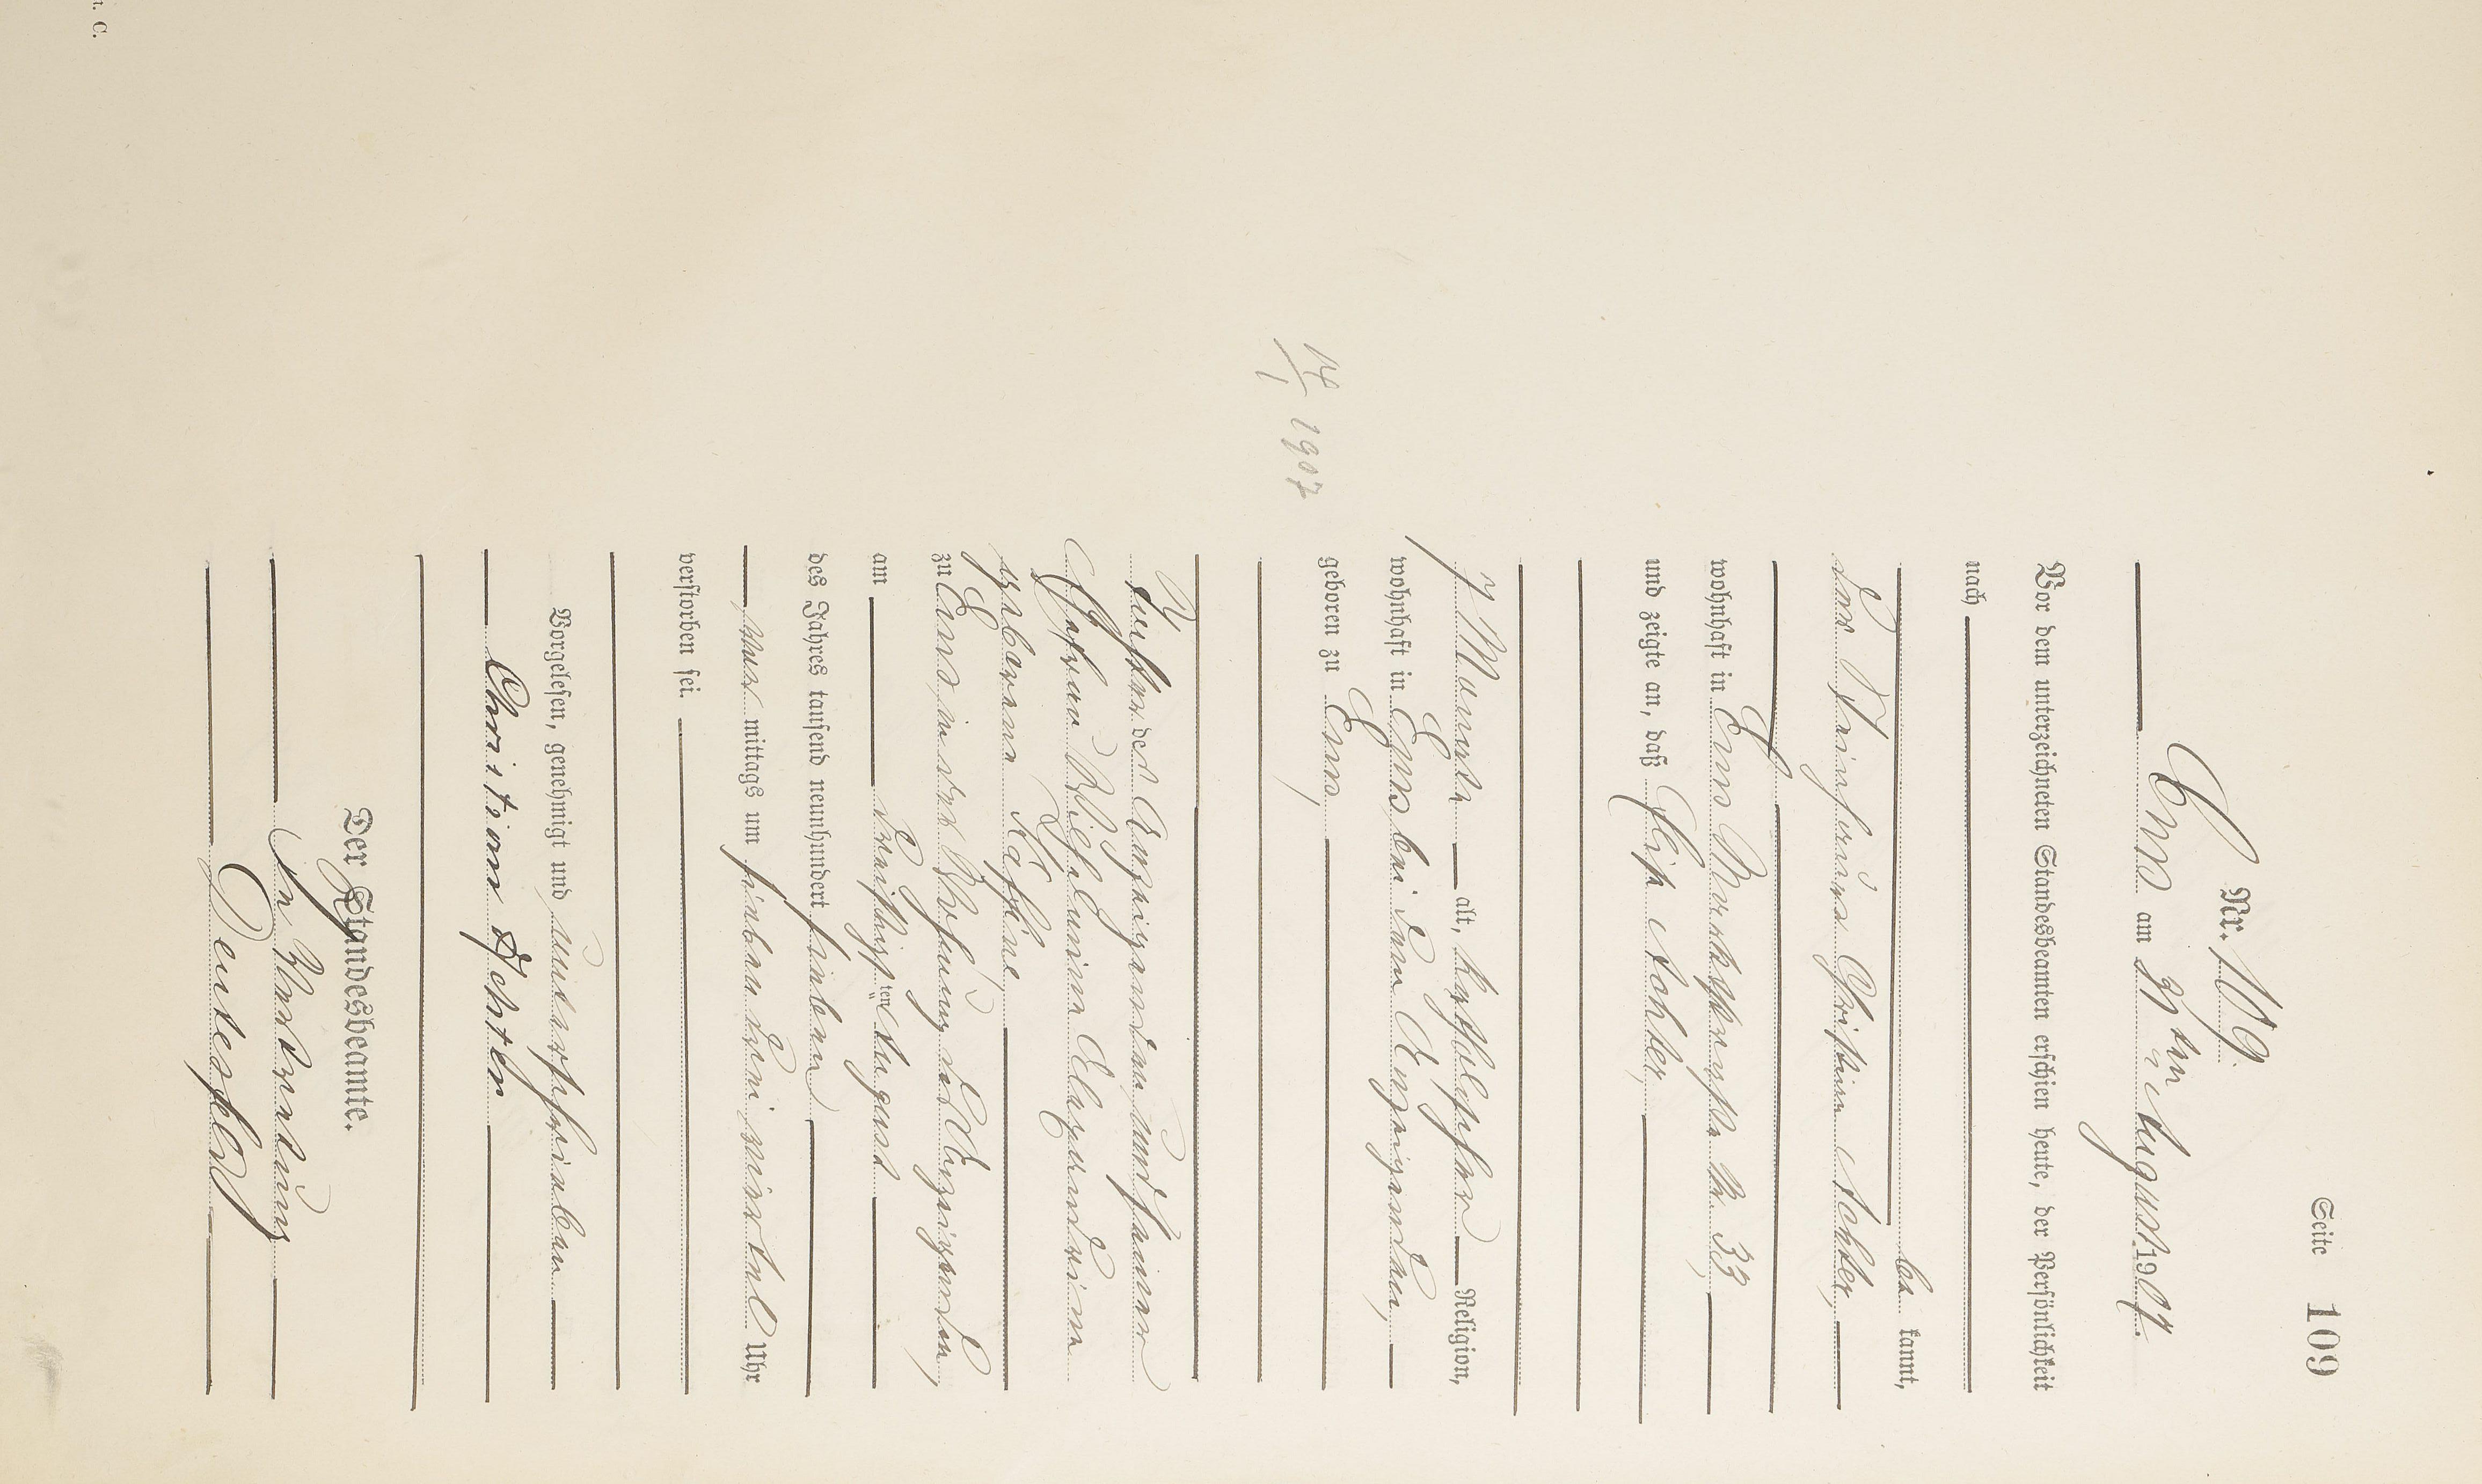 Seite 109
Nr. 109.
Ems am 31ten August 1907.
Vor dem unterzeichneten Standesbeamten erschien heute, der Persönlichkeit
nach
be kannt,
der Christian Achler,
wohnhaft in Ems Marktstraße Nr. 33,
und zeigte an, daß Elise Achler,
7 Monate alt, katholischer Religion,
wohnhaft in Ems bei dem Anzeigenden,
geboren zu Ems,
14/1 1907
Tochter des Anzeigenden und seiner
Ehefrau Wilhelmine Klementine
geborene
zu Ems, in der Wohnung des Anzeigenden,
am dreißigsten August
des Jahres tausend neunhundert sieben
Vor mittags um sieben drei viertel Uhr
verstorben sei.
Vorgelesen, genehmigt und unterschrieben
Christian Achter
Der Standesbeamte.
In Vertretung